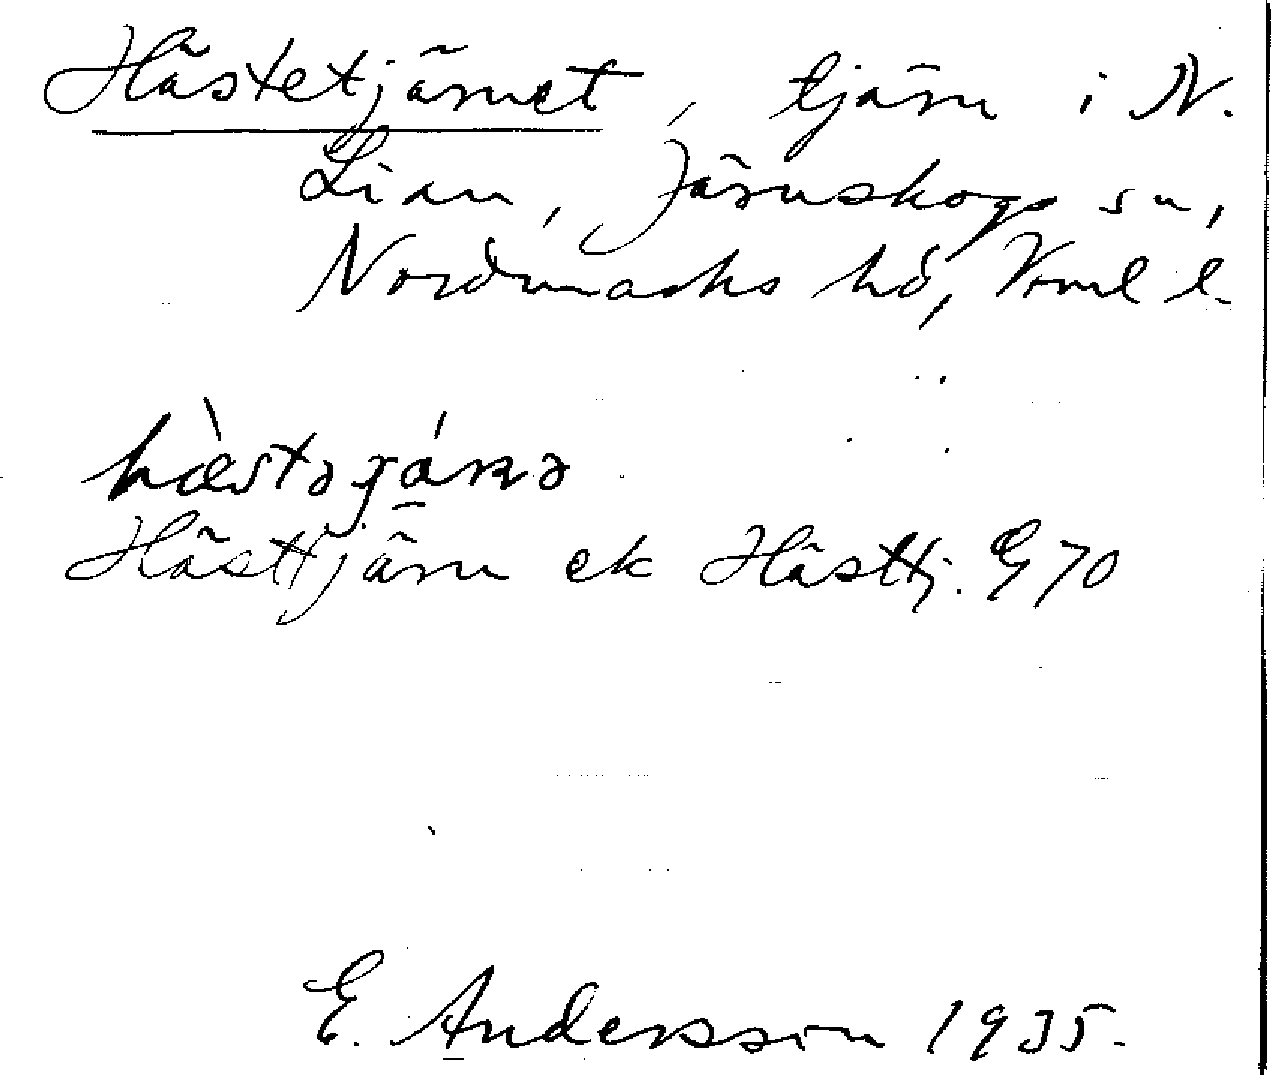 Hästetjärnet, tjärn i N.
Lian, Järnskogs sn,
Nordmarks hd, Vrml l.
hæ̀stəjánə
Hästtjärn ek Hästtj. E 70
E. Andersson 1935.